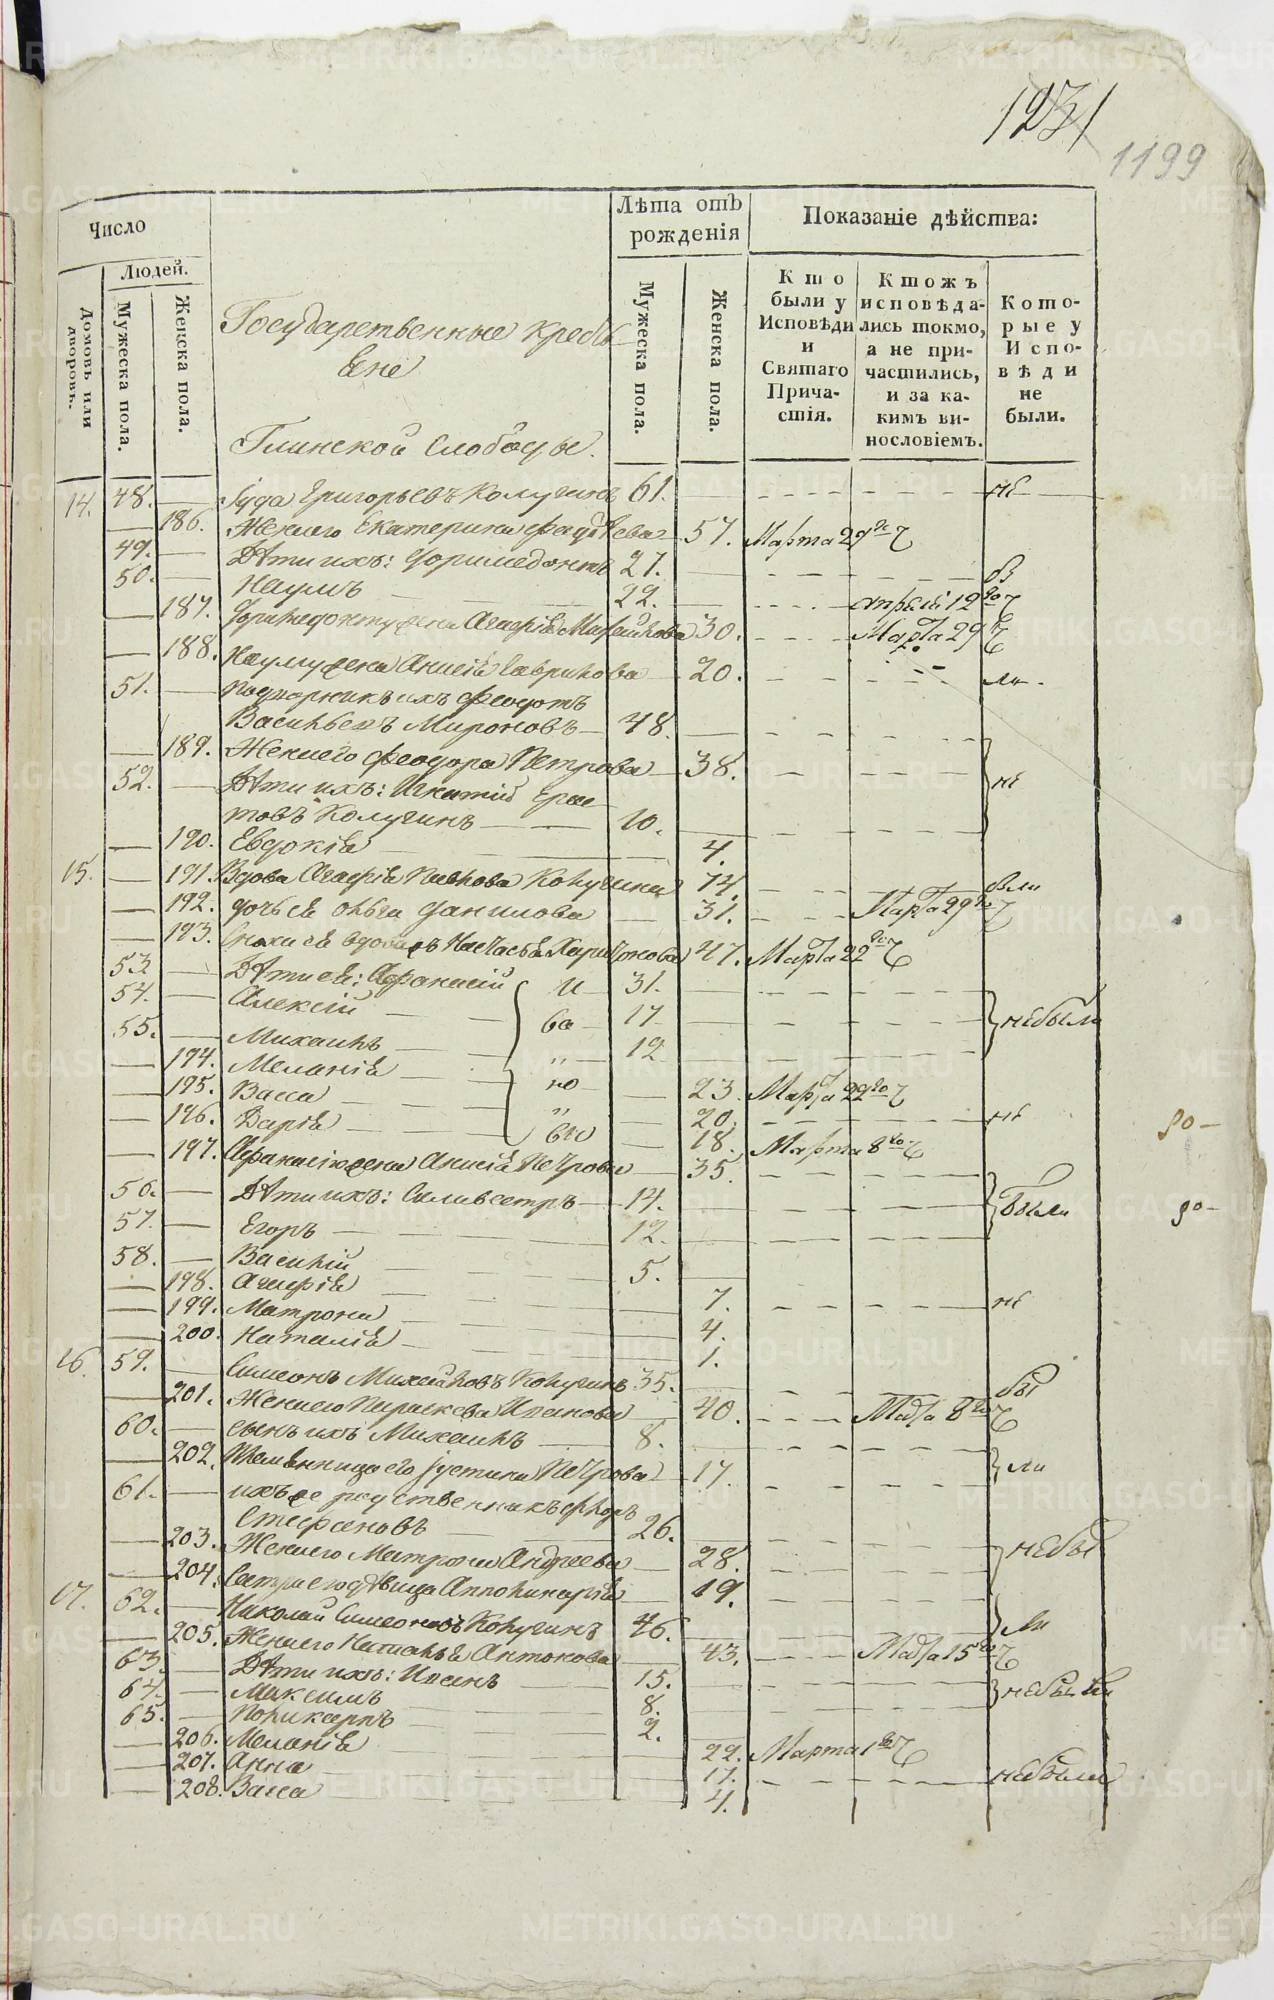 1231
1199
Число
Людей.
Домовъ или дворовъ.
Мужеска пола.
Женска пола.
Государственные кресть
яне
Глинской слободы.
Лѣта отъ рожденія
Мужеска пола.
Женска пола.
Показаніе дѣйства:
Кто были у Исповѣди и Святаго Прича- стія.
Ктожъ исповѣда- лись токмо, а не при- частились, и за ка- кимъ ви- нословіемъ.
Кото- рые у Испо- вѣди не были.
14. 48. Іуда Григорьевъ Колугинъ 61. не
186. Жена его Екатерина Фадѣева 57. Марта 29
49. Дѣти ихъ: Доримедонтъ 27.
50. Наумъ 22. апрѣля 12
187. Доримедонту жена Агафія Михайлова 30. Марта 29
188. Науму жена Анисія Гаврилова 20. ли
51. подворникъ ихъ Феодотъ
Васильевъ Мироновъ 48.
189. Жена его Феодора Петрова 38.
52. Дѣти ихъ: Игнатій Ерас не
товъ Колугинъ 10.
190. Евдокія 4.
15. 191. Вдова Агафія Павлова Колугина 74. были
192. дочь ея Ольга Данилова 31. Марта 29
193. Сноха ея вдова Настасья Харитонова 47. Марта 22
53 Дѣти ея: Афанасій 31.
54. Алексій 17
55. Михаилъ 12 небыли
194. Меланія 23. Марта 22
195. Васса 20. не
196. Дарія 18. Марта 8
197. Афанасію жена Анисія Петрова 35.
56. Дѣти ихъ: Силивестръ 14.
57. Егоръ 12. были
58. Василій 5.
198. Агафія 7. не
199. Матрона 4.
200. Наталія 1.
16. 59. Симеонъ Михайловъ Колугинъ 35. бы
201. Жена его Параскева Иванова 40. Марта 8
60. сынъ ихъ Михаилъ 8.
202. Племянница его Іустина Петрова 17. ли
61. ихъ же родственникъ Флоръ
Стефановъ 26.
203. Жена его Матрона Андреева 28. небы
204. Сестра его дѣвица Апполинарія 19.
17. 62. Николай Симеоновъ Колугинъ 46. ли
205. Жена его Наталья Антонова 43. Марта 15
63. Дѣти ихъ: Иванъ 15.
64. Максимъ 8. небыли
65. Поликарпъ 2.
206. Меланія 22. Марта 1
207. Анна 17. небыли
208. Васса 4.
METRIKI.GASO-URAL.RU